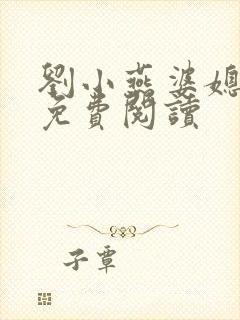 劉小燕婆媳
免費閱讀
子蕈